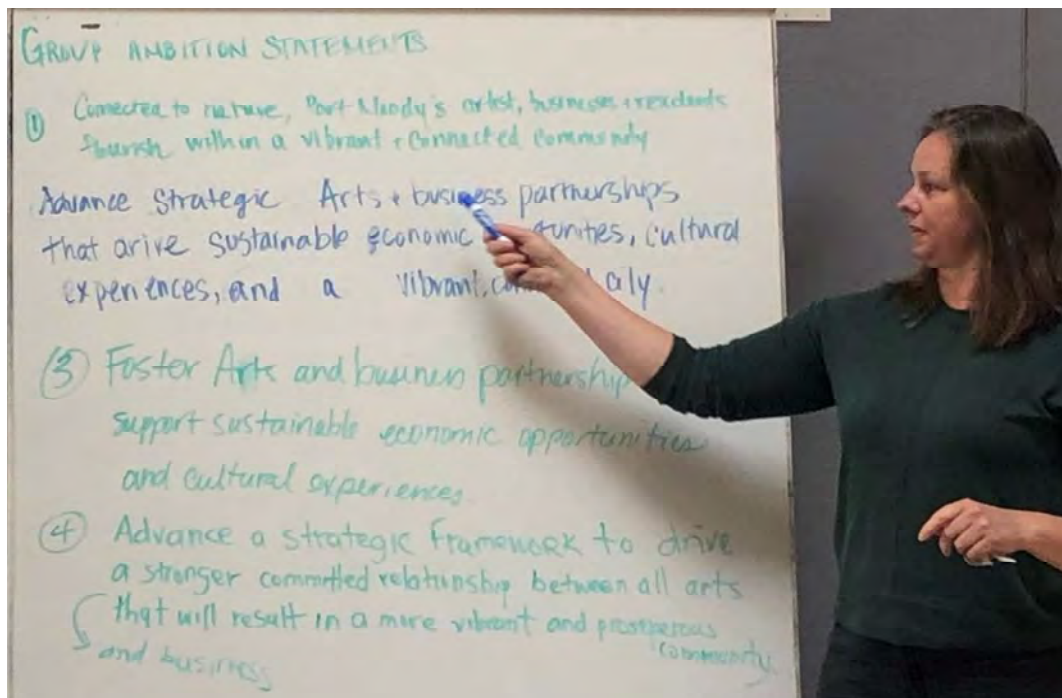 GROUP AMBITION STATEMENTS
① Connected to nature, Port Moody's artist, businesses + residents
flourish within a vibrant + connected community
Advance Strategic Arts + business partnerships
that drive sustainable economic tunities, cultural
experiences, and a vibrant, con aly.
③ Foster Arts and business partnership
support sustainable economic opportunities
and cultural experiences.
④ Advance a strategic framework to drive
a stronger committed relationship between all arts
that will result in a more vibrant and prosperous
community.
and business